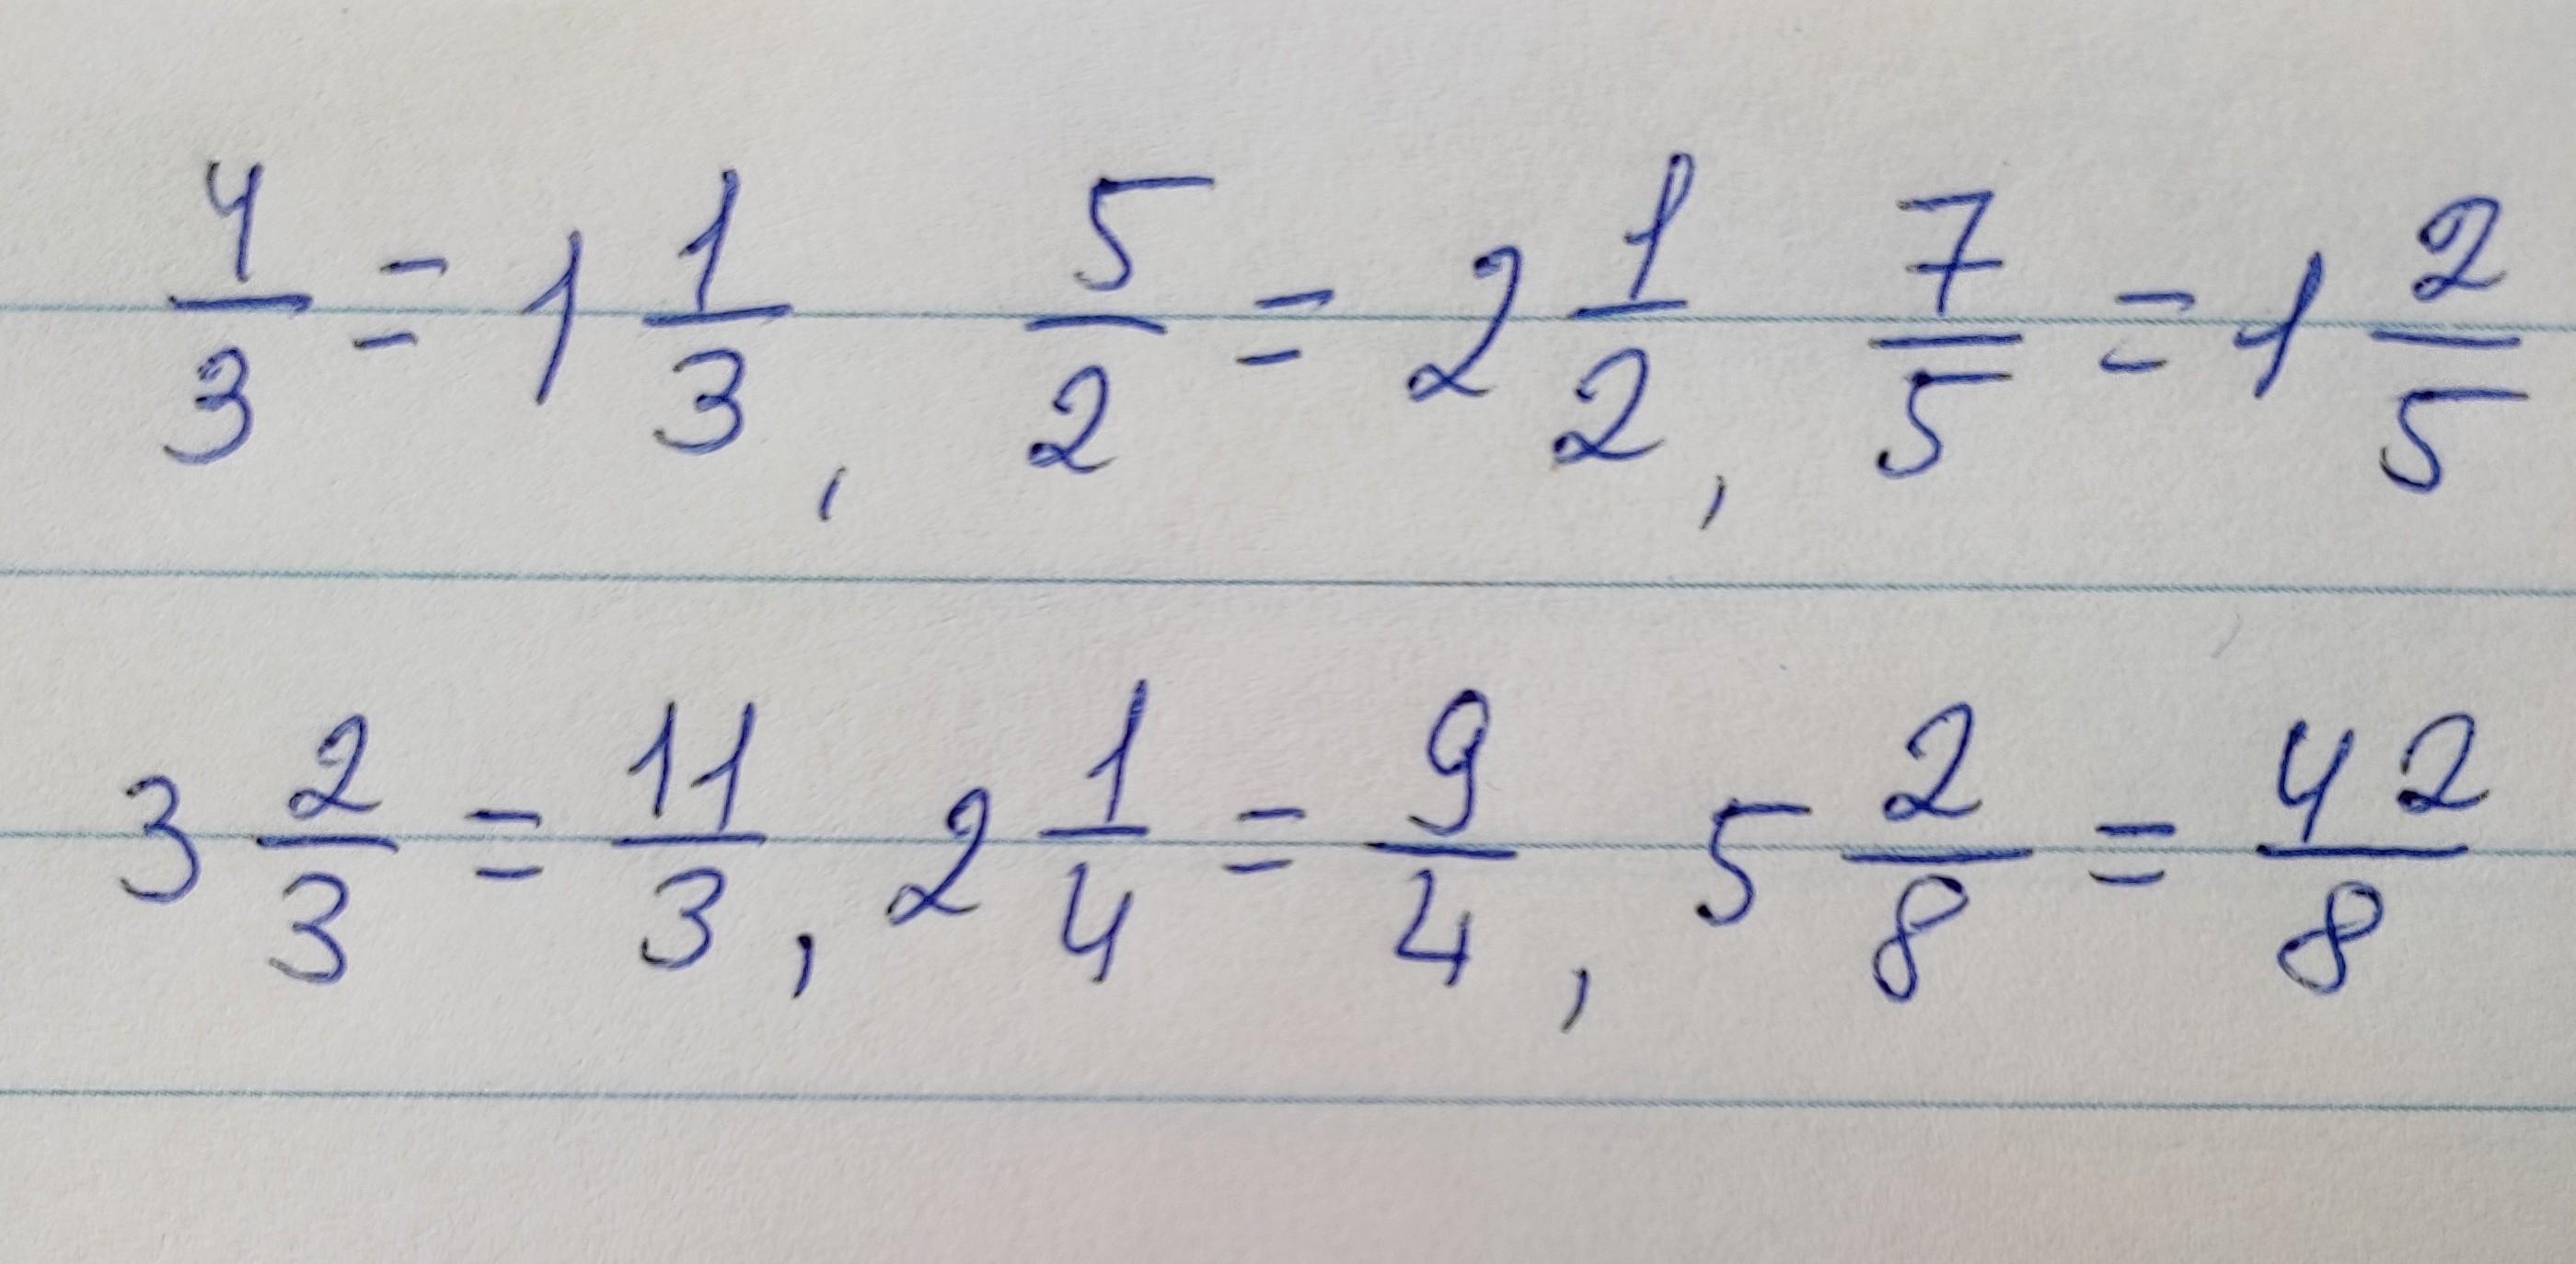 4/3 = 1 1/3, 5/2 = 2 1/2, 7/5 = 1 2/5
3 2/3 = 11/3, 2 1/4 = 9/4, 5 2/8 = 42/8